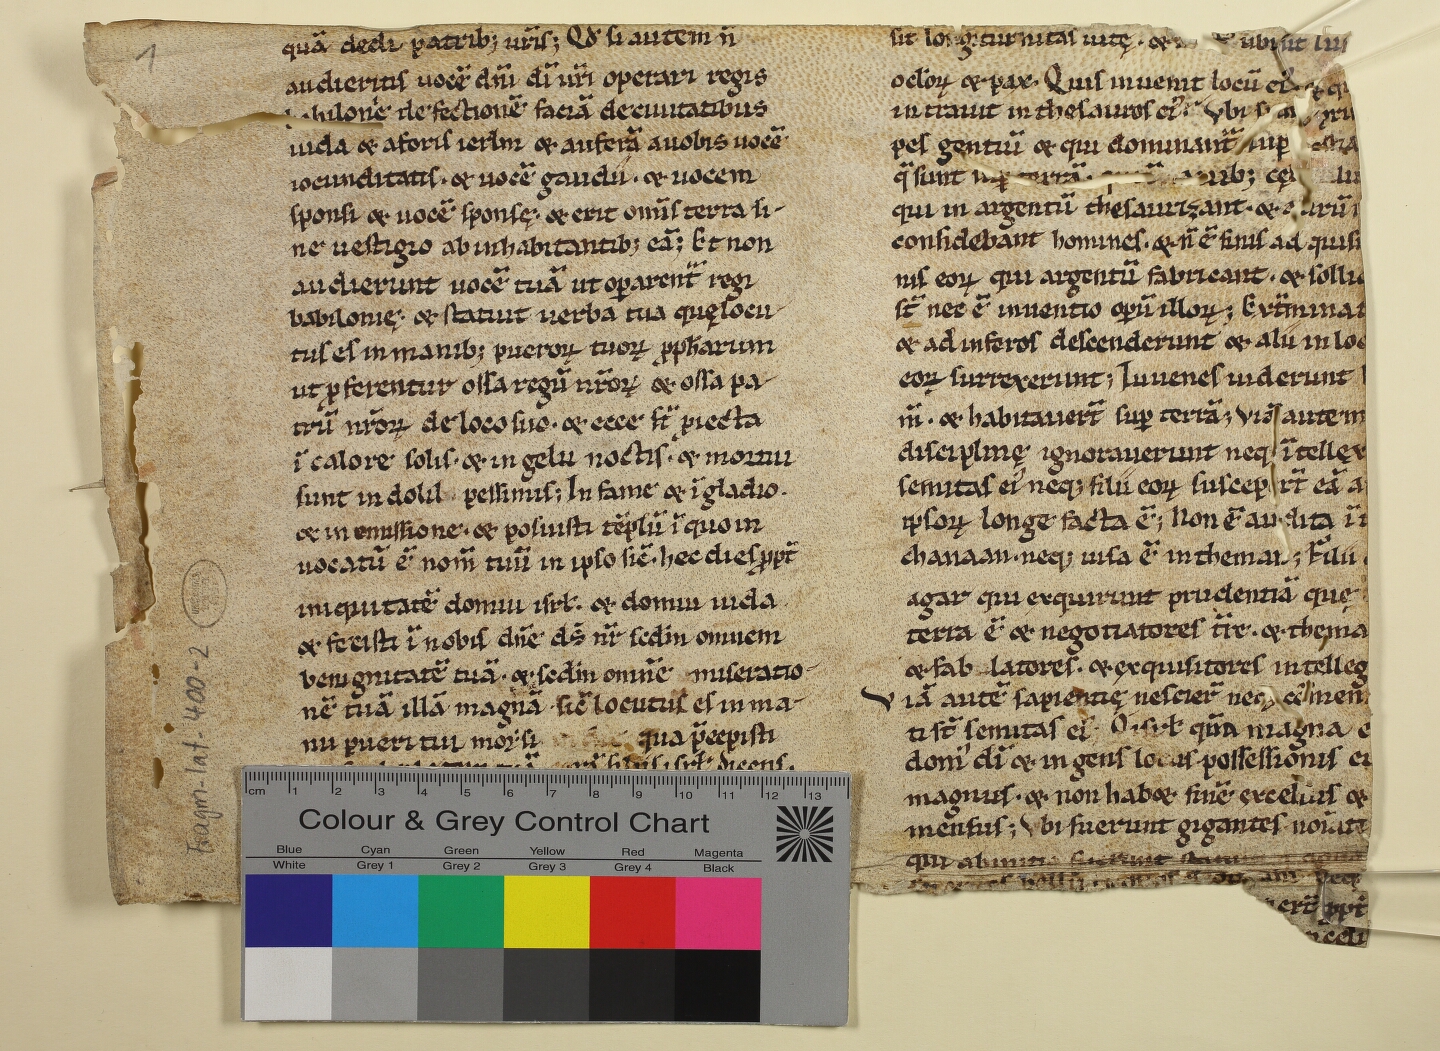 1
quā dedi patrib; urīs; Qď si autem ñ
audieritis uocē dn̄i dī urī operari regis
babilonie defectionē faciā de ciuitatibus
iuda & a foris ierlm̄ & auferā a uobis uocē
iocunditatis. & uocē gaudii. & uocem
sponsi & uocē sponsę. & erit omīs terra si-
ne uestigio ab inhabitantib; eā; Et non
audierunt uocē tuā ut operarent̄ regi
babilonię. & statuit uerba tua quę locu-
tus es in manib; pueroꝝ tuoꝝ ꝓph̄arum
ut ꝓferentur ossa regū nr̄oꝝ & ossa pa-
trū nr̄oꝝ de loco suo. & ecce st̄ ꝓiecta
ī calore solis. & in gelu noctis. & mortui
sunt in dolil pessimis; In fame & ī gladio.
& in emissione. & posuisti tēplū ī quo in
uocatū ē nom̄ tuū in ipso sic̄. hec dies ꝓpt̄
iniquitatē domui isrl̄. & domui iuda
& fecisti ī nobis dn̄e ds̄ nr̄ sedm̄ omnem
benignitatē tuā. & sedm̄ omnē miseratio-
nē tuā illā magnā sic̄ locutus es in ma-
nu pueri tui moysi qua p̄cepisti
isrl̄ dicens.
sit longiturnitas uitę. & ubi sit lu
ocloꝝ & pax. Quis inuenit locū ei
intrauit in thesauros ei; Vbi s pri
pes gentiū & qui dominant̄ sup
q̄ sunt sup terrā.
qui in argentū thesaurizant. & aurū
considebant homines. & ñ ē finis ad quisi
nis eoꝝ qui argentū fabricant. & sollic
st̄ nec ē inuentio opū illoꝝ; Ext̄minat
& ad inferos descenderunt & alii in loc
eoꝝ surrexerunt; Iuuenes uiderunt l
m̄. & habitauert̄ sup terrā; Viā autem
disciplinę ignorauerunt neq; ītellex
semitas ei neq; filii eoꝝ suscepert̄ eā a
ipsoꝝ longe facta ē; Non ē audita ī t
chanaan. neq; uisa ē in theman; Filii
agar qui exquirunt prudentiā que
terra ē & negotiatores tr̄r. & thema
& fab latores. & exquisitores intelleg
Viā autē sapientię nescier̄ neq; cōmem
ti st̄ semitas ei. O isrl̄ quā magna e
dom' dī & ingens locus possessionis ei
magnus. & non hab& finē excelsus &
mensus; Vbi fuerunt gigantes noīati
qui ab initio fuerunt
ert̄ ꝓpt̄
Fragm. lat. 400-2
cm 1 2 3 4 5 6 7 8 9 10 11 12 13
Colour & Grey Control Chart
Blue Cyan Green Yellow Red Magenta
White Grey 1 Grey 2 Grey 3 Grey 4 Black